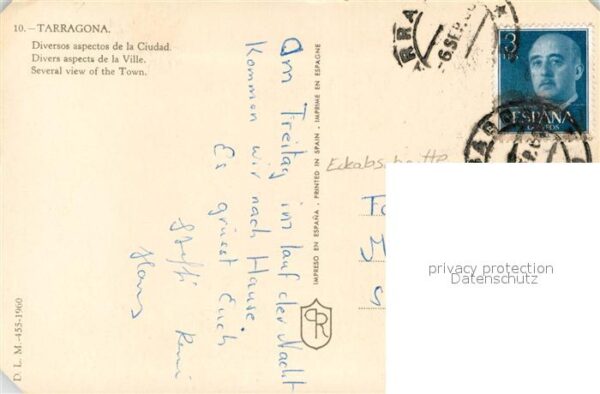 10. - TARRAGONA.
Diversos aspectos de la Ciudad.
Divers aspects de la Ville.
Several view of the Town.
Am Freitag im lauf der Nacht
kommen wir nach Hause.
Es grüsst Euch
Steffi
Hans
D. L. M.-455-1960
IMPRESO EN ESPAÑA - PRINTED IN SPAIN - IMPRIME EN ESPAGNE
PR
3
ESPAÑA
CORREOS
6 SEP.
privacy protection
Datenschutz